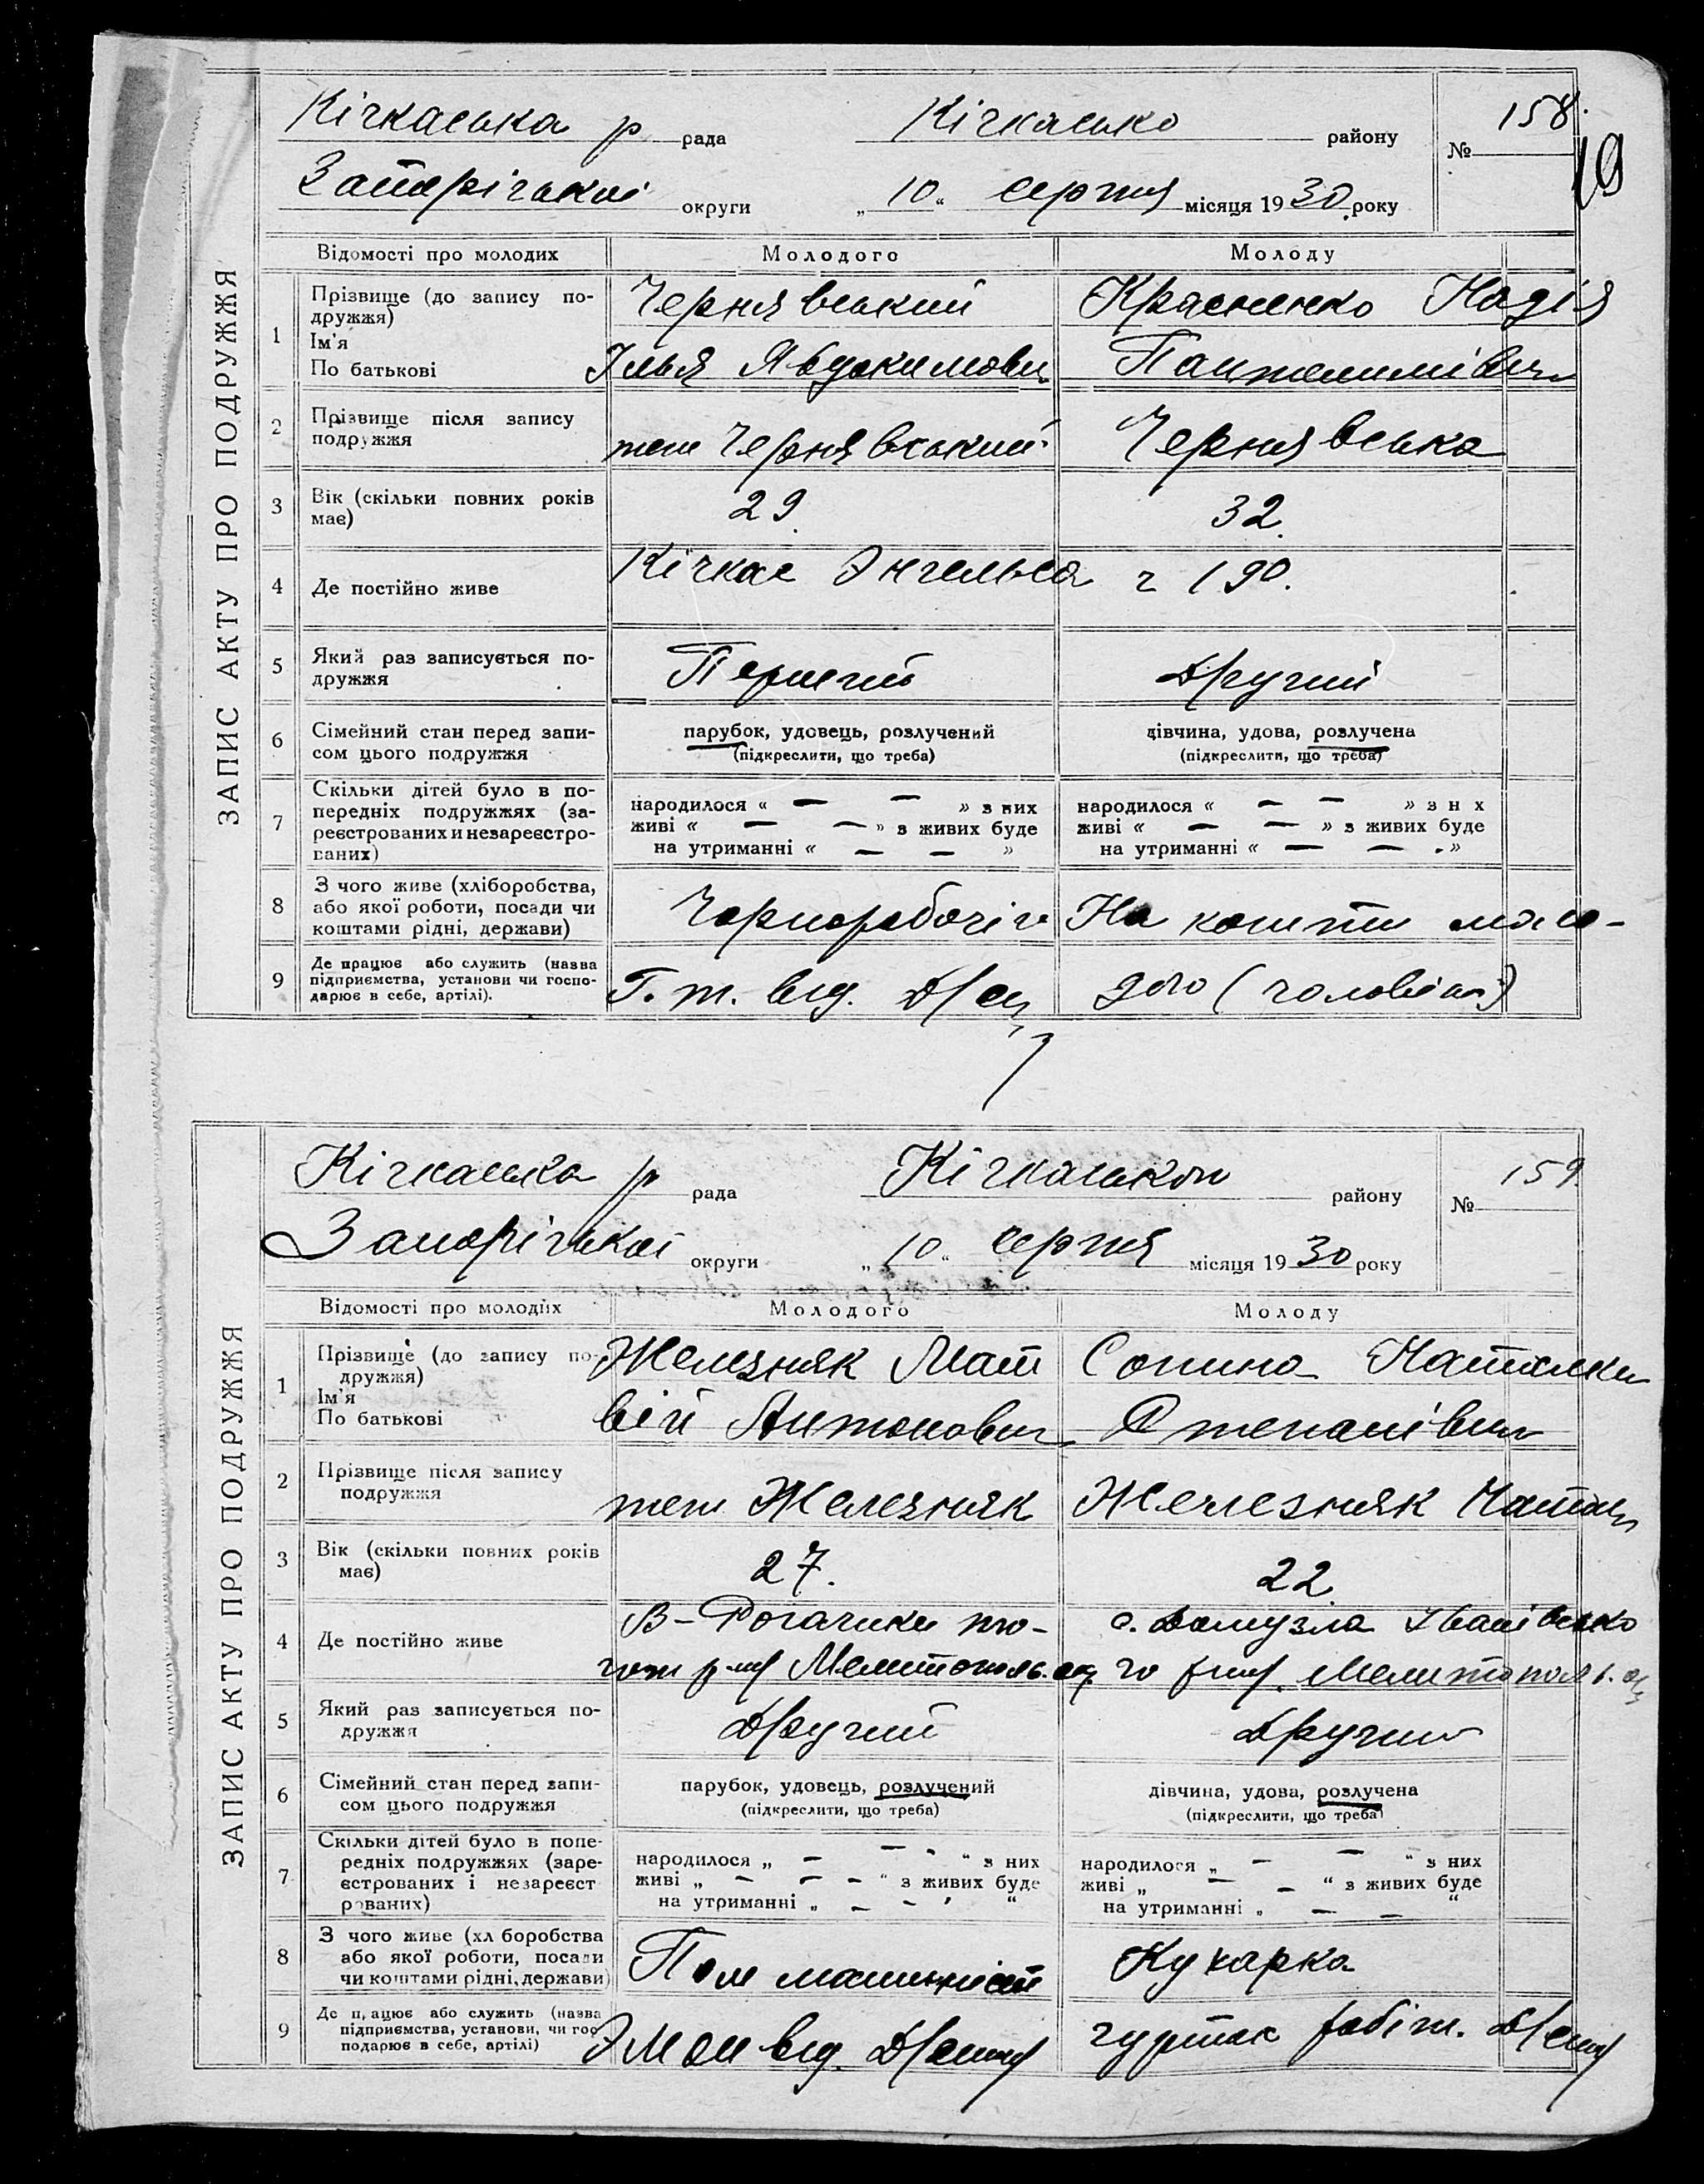 Кічкаська р. рада Кічкасько району № 158.
19
Запорізької округи „10“ серпня місяця 1930 року
ЗАПИС АКТУ ПРО ПОДРУЖЖЯ
Відомості про молодих Молодого Молоду
1 Прізвище (до запису по-
дружжя)
Ім'я
По батькові
Чернявський
Ілья Явдокимович
Красненко Надія
Пантелимнівн
2 Прізвище після запису
подружжя
теж Чернявський
Чернявська
3 Вік (скільки повних років
має)
29.
32.
4 Де постійно живе
Кічкас Энгельса ч 190.
5 Який раз записується по-
дружжя
Перший
Другий
6 Сімейний стан перед запи-
сом цього подружжя
парубок, удовець, розлучений
(підкреслити, що треба)
дівчина, удова, розлучена
(підкреслити, що треба)
7 Скільки дітей було в по-
передніх подружжях (за-
реєстрованих и незареєстро-
ваних)
народилося « — — » з них
живі « — — » з живих буде
на утриманні « — — »
народилося « — — » з н х
живі « — — » з живих буде
на утриманні « — — »
8 З чого живе (хліборобства,
або якої роботи, посади чи
коштами рідні, держави)
Чорноробочій
На кошти моло-
9 Де працює або служить (назва
підприємства, установи чи госпо-
дарює в себе, артілі).
Г. т. від.
дого (чоловіка)
Кічкаська р рада Кічкаської району № 159.
Запорізької округи „10“ серпня місяця 1930 року
ЗАПИС АКТУ ПРО ПОДРУЖЖЯ
Відомості про молодих Молодого Молоду
1 Прізвище (до запису по-
дружжя)
Ім'я
По батькові
Железняк Мат
вій Антонович
Сопина Наталки
Степанівни
2 Прізвище після запису
подружжя
теж Железняк
Железняк
3 Вік (скільки повних років
має)
27.
22.
4 Де постійно живе
В-Рогачики то-
гож р-ну Мелитополь. окр.
с. Домузла Іванівсько
го р-ну. Мелитополь. ок
5 Який раз записується по-
дружжя
Другий
Другий
6 Сімейний стан перед запи-
сом цього подружжя
парубок, удовець, розлучений
(підкреслити, що треба)
дівчина, удова, розлучена
(підкреслити, що треба)
7 Скільки дітей було в попе-
редніх подружжях (заре-
єстрованих і незареєст
рованих)
народилося „ — — “ з них
живі „ — — — “ з живих буде
на утриманні „ — — “
народилося „ — — “ з них
живі „ — — “ з живих буде
на утриманні „ — — “
8 З чого живе (хл боробства
або якої роботи, посади
чи коштами рідні, держави)
Пом машиніст
Кухарка
9 Де п, ацює або служить (назва
підприємства, установи, чи гос
подарює в себе, артілі)
від.
гурток робіт.